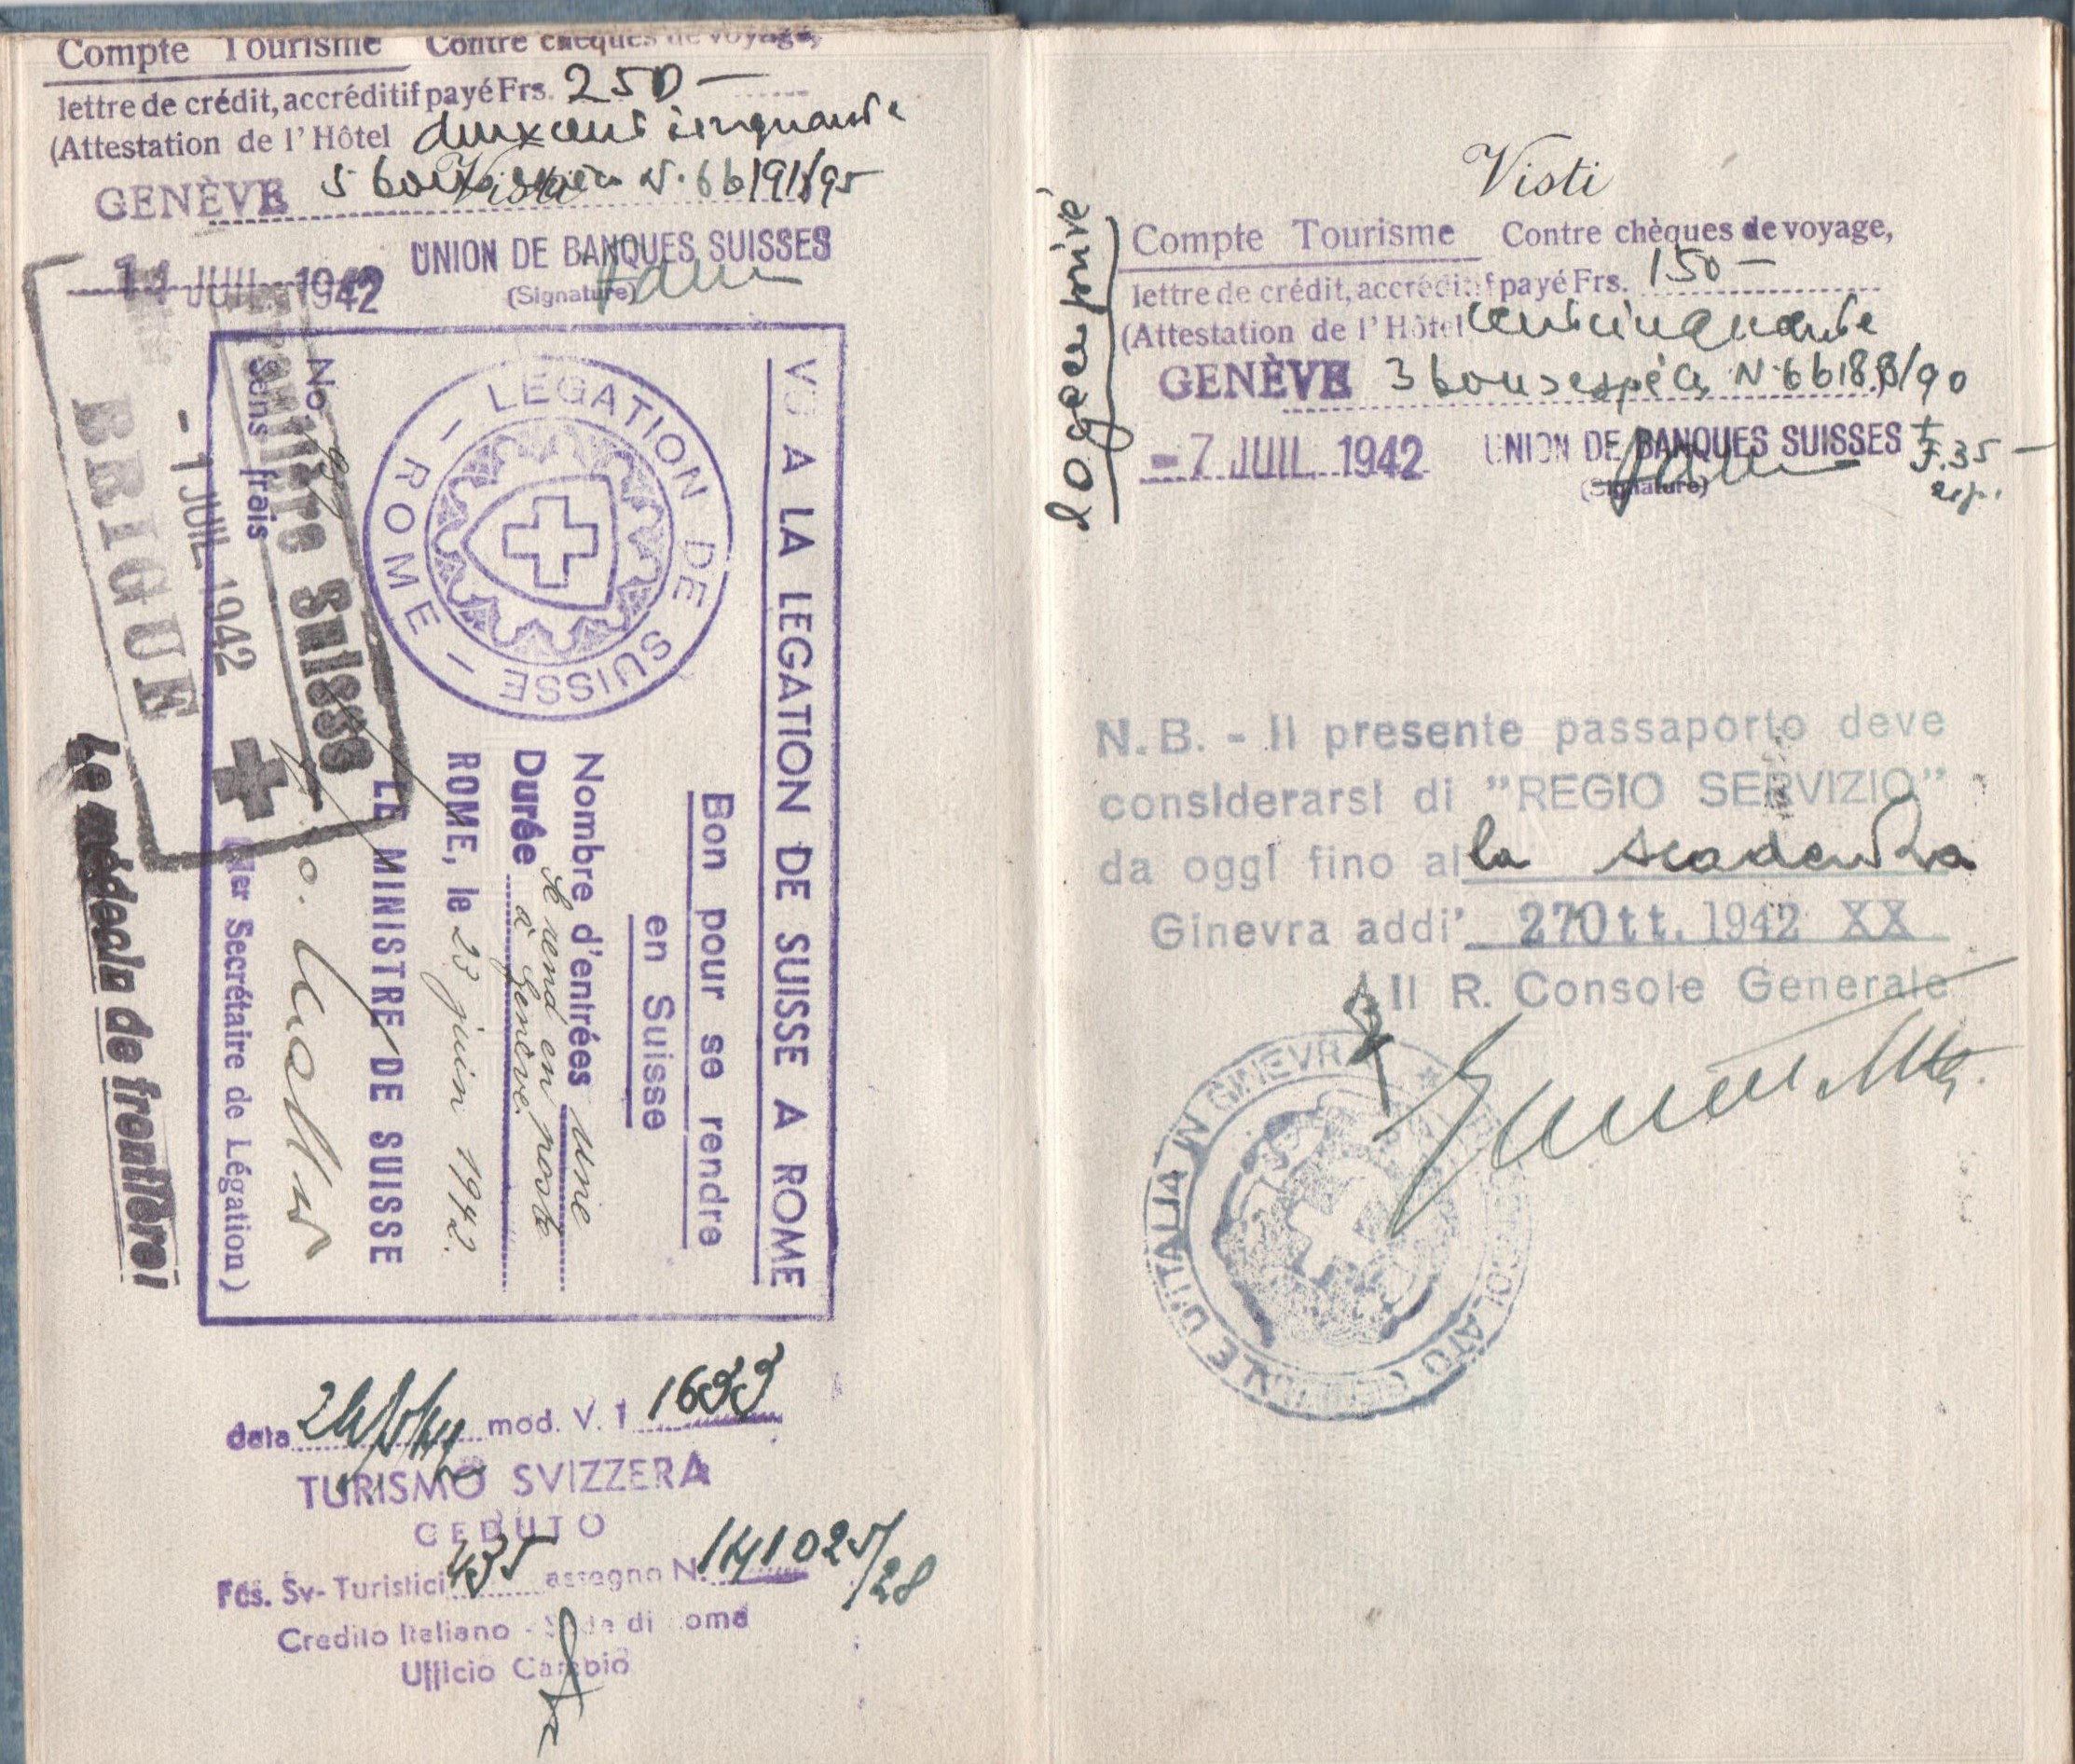 Compte Tourisme Contre chèques de voyage,
lettre de crédit, accréditif payé Frs. 250 –
(Attestation de l'Hôtel deux cent cinquante
GENÈVE 5 bons N. 66191/95
Visti
14 JUIL. 1942 UNION DE BANQUES SUISSES
(Signature)
VU A LA LEGATION DE SUISSE A ROME
Bon pour se rendre
en Suisse
Nombre d'entrées une
Se rend en poste
Durée à Genève.
ROME, le 23 juin 1942.
LE MINISTRE DE SUISSE
p. o.
(Ier Secrétaire de Légation)
No.
Sans frais
LEGATION DE SUISSE
– ROME –
Suisse
- 1 JUIL 1942
BRIGUE
Le médecin de frontière:
data mod. V. 1 1633
TURISMO SVIZZERA
CEDUTO
Fcs. Sv- Turistici 435 assegno N. 141025/28
Credito Italiano - Sede di Roma
Ufficio Cambio
Visti
loge en privé
Compte Tourisme Contre chèques de voyage,
lettre de crédit, accréditif payé Frs. 150 –
(Attestation de l'Hôtel cent cinquante
GENÈVE 3 bons espéces N. 66188/90
- 7 JUIL. 1942 UNION DE BANQUES SUISSES + F. 35 –
(Signature)
N. B. - Il presente passaporto deve
considerarsi di "REGIO SERVIZIO"
da oggi fino alla scadenza
Ginevra addi' 27 Ott. 1942 XX
Il R. Console Generale
CONSOLATO GENERALE D'ITALIA IN GINEVRA